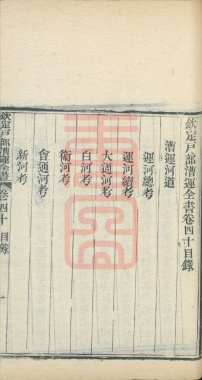 欽定戶部漕運全書卷四十目錄
漕運河道
運河總考
運河續考
大通河考
白河考
衛河考
會通河考
新河考
欽定戶部漕運全書
卷四十 目錄